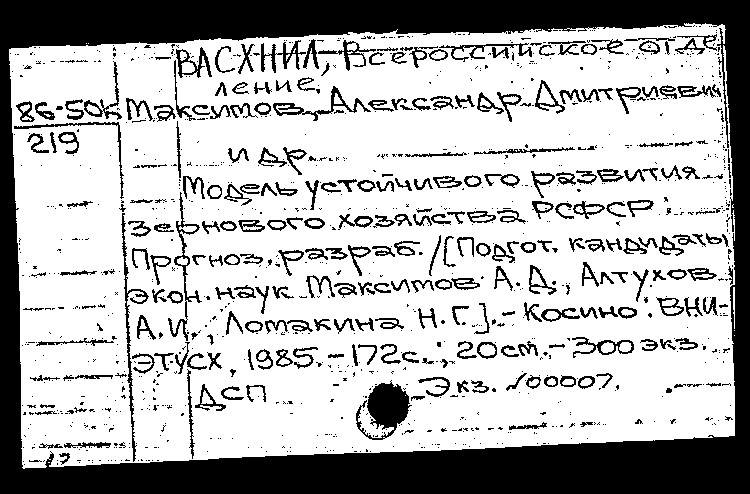 ВАСХНИЛ, Всероссийское отде
ление.
86-50к Максимов, Александр Дмитриевич
219
и др.
Модель устойчивого развития
зернового хозяйства РСФСР:
Прогноз. разраб. /[Подгот. кандидаты
экон. наук Максимов А.Д., Алтухов
А.И., Ломакина Н.Г.].- Косино: ВНИ-
ЭТУСХ, 1985.-172с.; 20см.-300экз.
ДСП Экз. №00007.